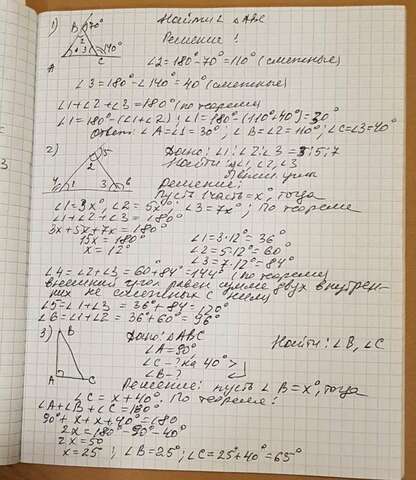 1) Найти ∠ △ABC
B 70°
2
1 3 140°
A C
Решение:
∠2=180°-70°=110° (смежные)
∠3=180°-∠140°=40° (смежные)
∠1+∠2+∠3=180° (по теореме)
∠1=180°-(∠1+∠2); ∠1=180°-(110°+40°)=30°
Ответ: ∠A=∠1=30°; ∠B=∠2=110°; ∠C=∠3=40°
2) Дано: ∠1:∠2:∠3=3:5:7
5
2
4 1 3 6
Найти: ∠1, ∠2, ∠3
углы
Решение:
Пусть 1 часть=x°, тогда
∠1=3x°, ∠2=5x°, ∠3=7x°; По теореме
∠1+∠2+∠3=180°
3x+5x+7x=180°
15x=180° ∠1=3·12°=36°
x=12° ∠2=5·12°=60°
∠3=7·12°=84°
∠4=∠2+∠3=60+84°=144° (по теореме,
внешний угол равен сумме двух внутрен-
них не смежных с ним)
∠5=∠1+∠3=36°+84=120°
∠6=∠1+∠2=36°+60°=96°
3) B
A C
Дано: △ABC Найти: ∠B, ∠C
∠A=90°
∠C-? на 40°>
∠B-?
Решение: пусть ∠B=x°, тогда
∠C=x+40°. По теореме:
∠A+∠B+∠C=180°
90°+x+x+40°=180
2x=180°-90°-40°
2x=50°
x=25°; ∠B=25°; ∠C=25°+40°=65°